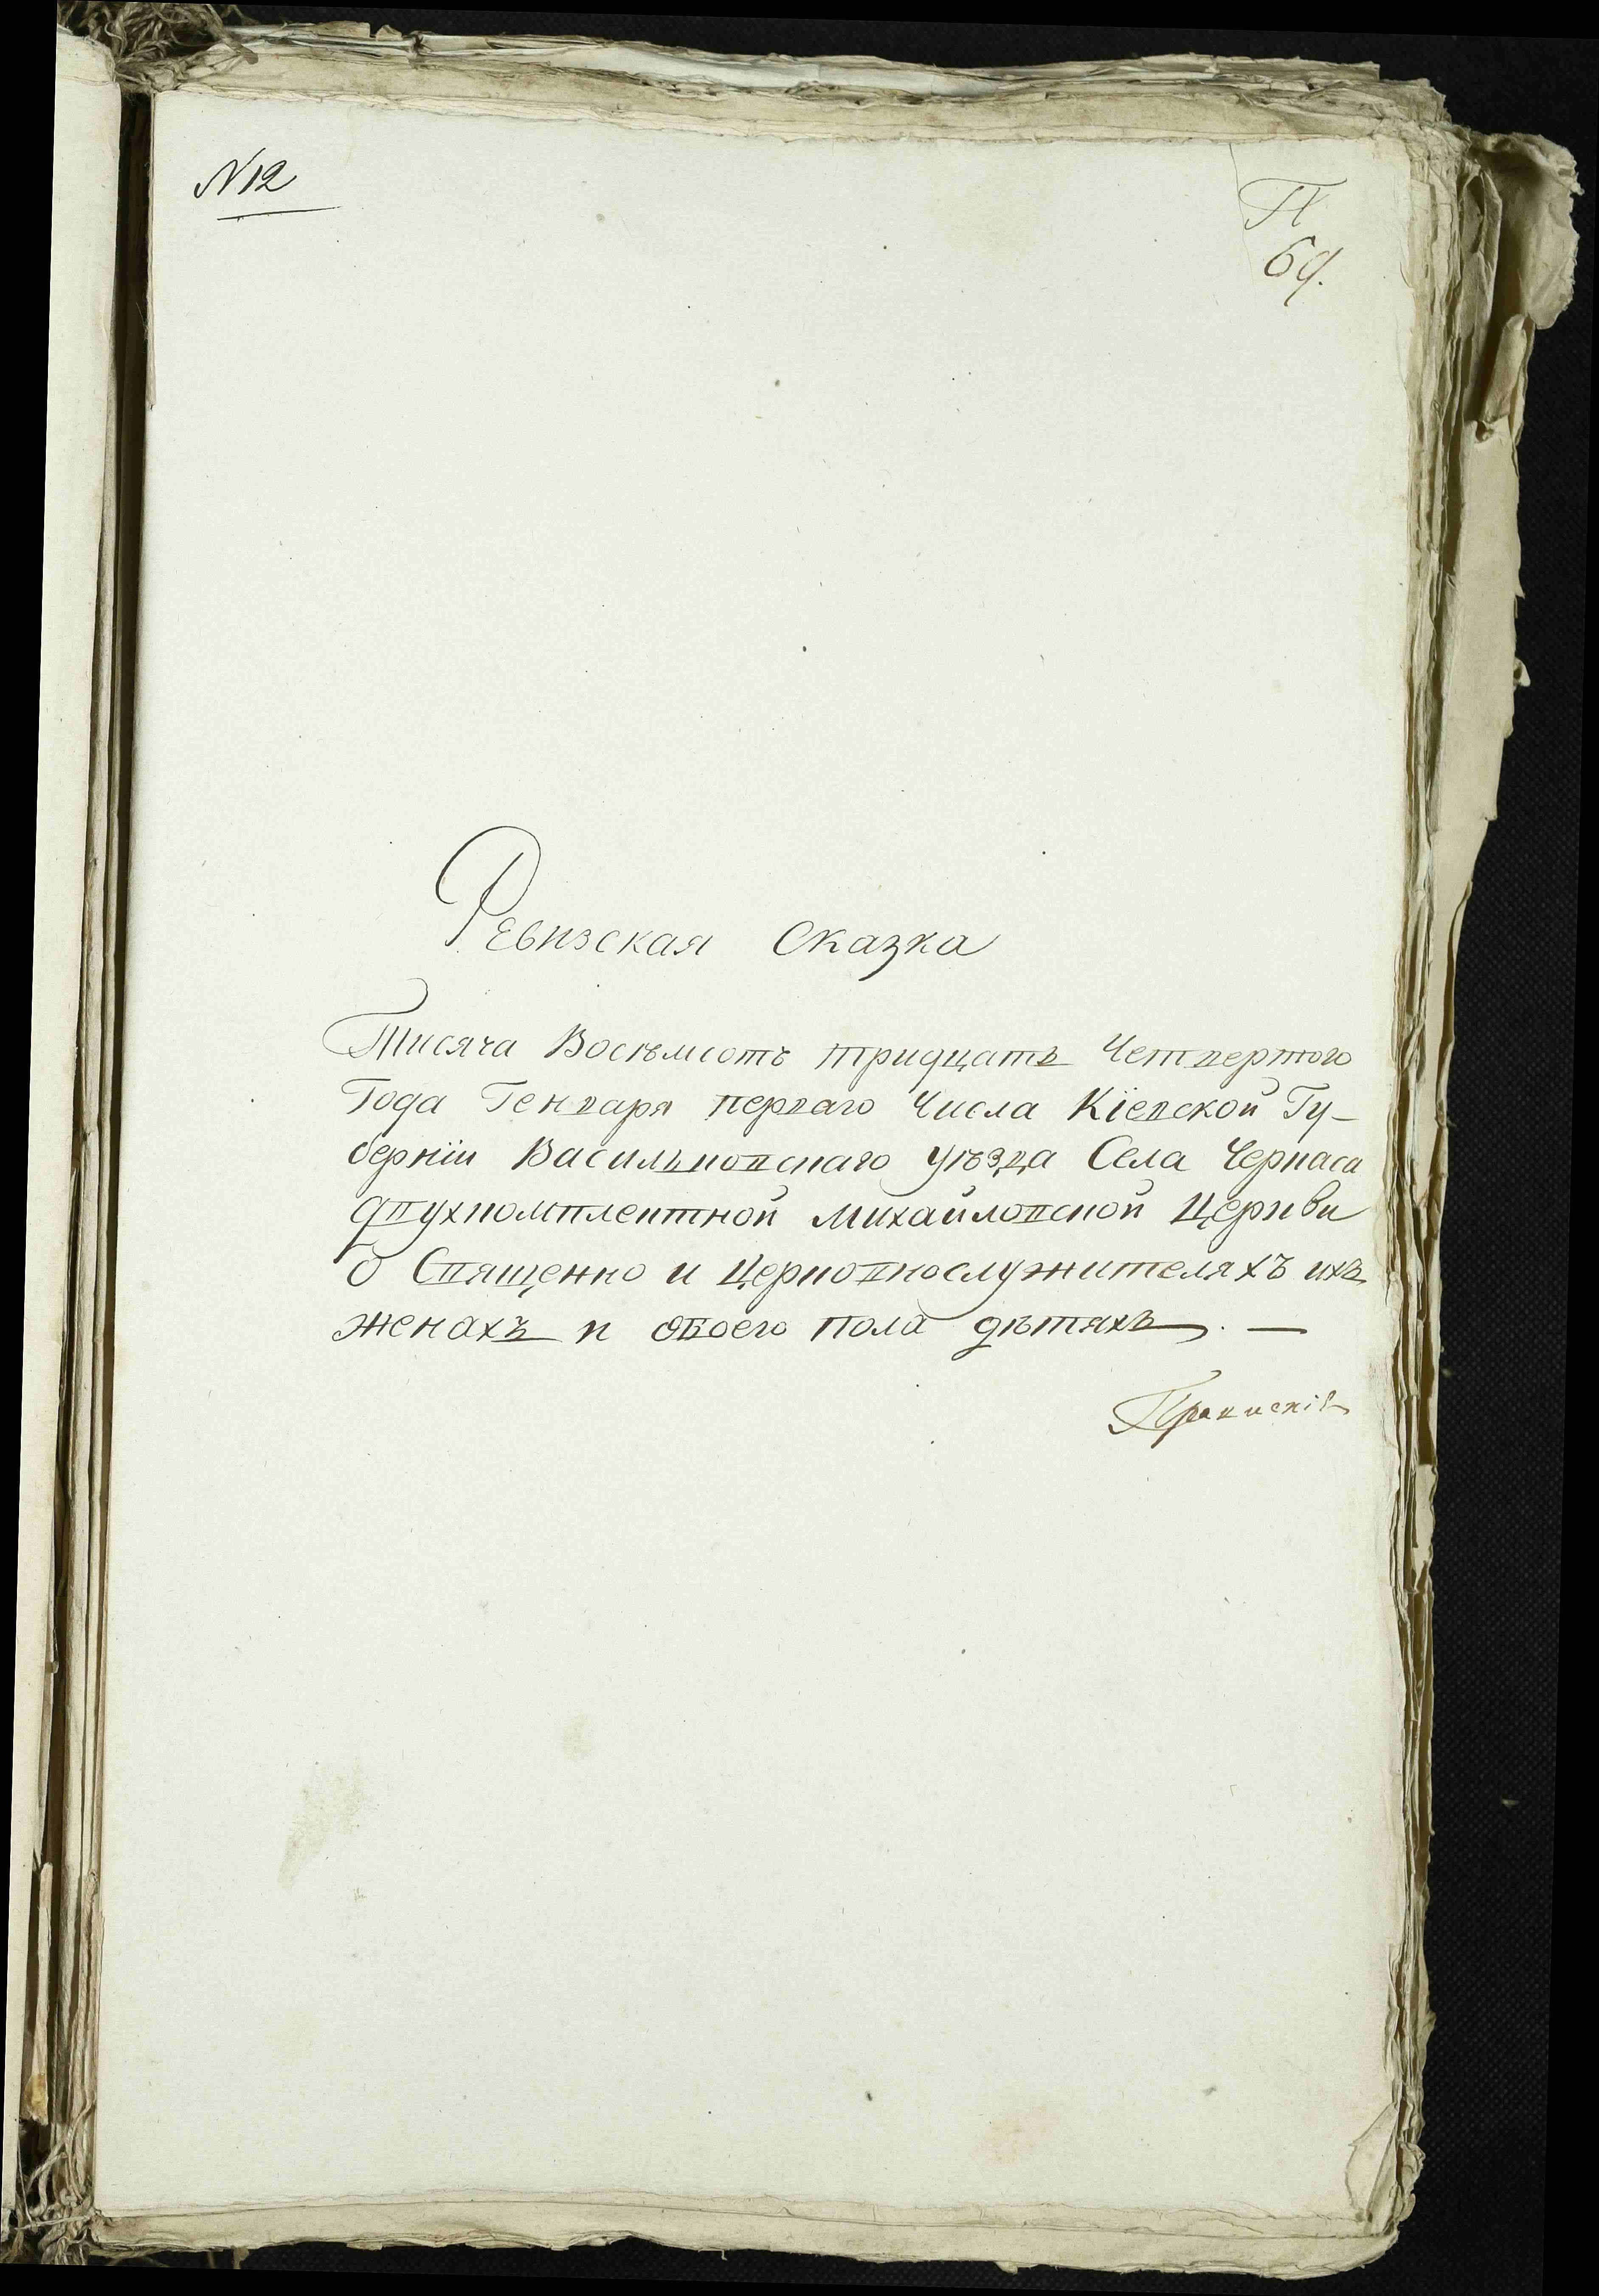 N 12
69.
Ревизская Сказка
Тисяча Восѣмсотъ тридцать Четвертого
Года Генваря перваго Числа Кіевской Гу-
берніи Васильковскаго уѣзда Села Черкаса
двухкомплектной Михайловской Церкви
о Священно и Церковнослужителяхъ ихъ
женахъ и обоего пола дѣтяхъ. —